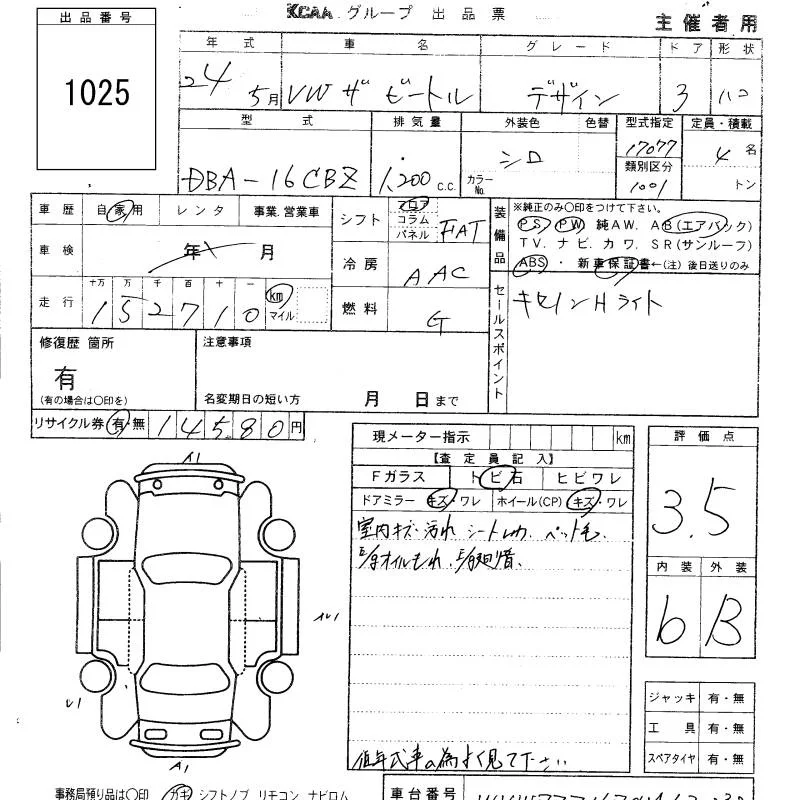 KCAA グループ 出品票
主催者用
出品番号
1025
年式 車名 グレード ドア 形状
24 5月 VW ザ ビートル デザイン 3 ハコ
型式 排気量 外装色 色替 型式指定 定員・積載
DBA-16CBZ 1,200 c.c. カラーNo. シロ 17077 4名
類別区分
1001 トン
車歴 自家用 レンタ 事業.営業車
シフト フロア コラム パネル FAT
装備品 ※純正のみ〇印をつけて下さい。
PS PW 純AW. AB(エアバック)
TV. ナビ. カワ. SR(サンルーフ)
ABS ・ 新車保証書←(注) 後日送りのみ
車検 年 月
冷房 AAC
走行 十万 万 千 百 十 一
152710 km マイル
燃料 G
セールスポイント キセノンHライト
修復歴 箇所
有
(有の場合は〇印を)
注意事項
名変期日の短い方 月 日まで
リサイクル券 有・無 14580円
現メーター指示 km
【査定員記入】
Fガラス トビ石 ヒビワレ
ドアミラー キズ・ワレ ホイール(CP) キズ・ワレ
室内キズ・汚れ シート ペット毛.
E/gオイルもれ.
低年式車の為よく見て下さい
評価点
3.5
内装 外装
b B
A1
A1
ジャッキ 有・無
工具 有・無
スペアタイヤ 有・無
事務局預り品は〇印 カギ シフトノブ リモコン ナビロム
車台番号